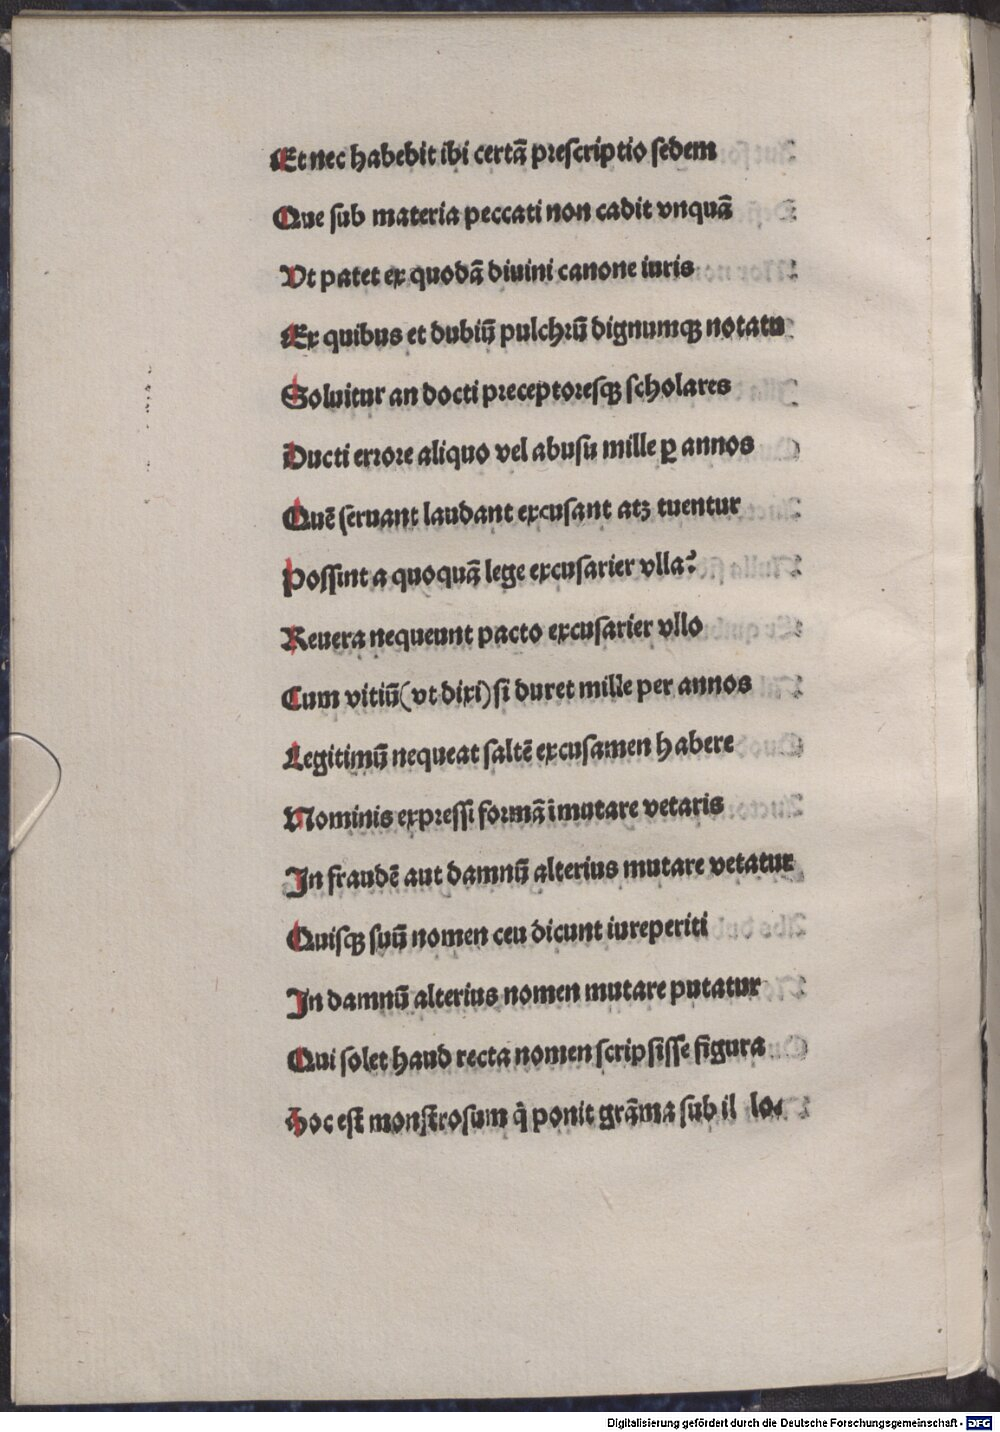 Et nec habebit ibi certã prescriptio sedem
Que sub materia peccati non cadit vnquã
Vt patet ex quodã diuini canone iuris
Ex quibus et dubiũ pulchrũ dignumqꝫ notatu
Soluitur an docti preceptoresqꝫ scholares
Ducti errore aliquo vel abusu mille ꝑ annos
Quẽ seruant laudant excusant atꝫ tuentur
Possint a quoquã lege excusarier vlla?
Reuera nequeunt pacto excusarier vllo
Cum vitiũ (vt dixi) si duret mille per annos
Legitimũ nequeat saltẽ excusamen habere
Nominis expressi formã ĩmutare vetaris
In fraudẽ aut damnũ alterius mutare vetatur
Quisqꝫ suũ nomen ceu dicunt iureperiti
In damnũ alterius nomen mutare putatur
Qui solet haud recta nomen scripsisse figura
Hoc est monstrosum q̇ ponit grãma sub il lo
Digitalisierung gefördert durch die Deutsche Forschungsgemeinschaft - DFG